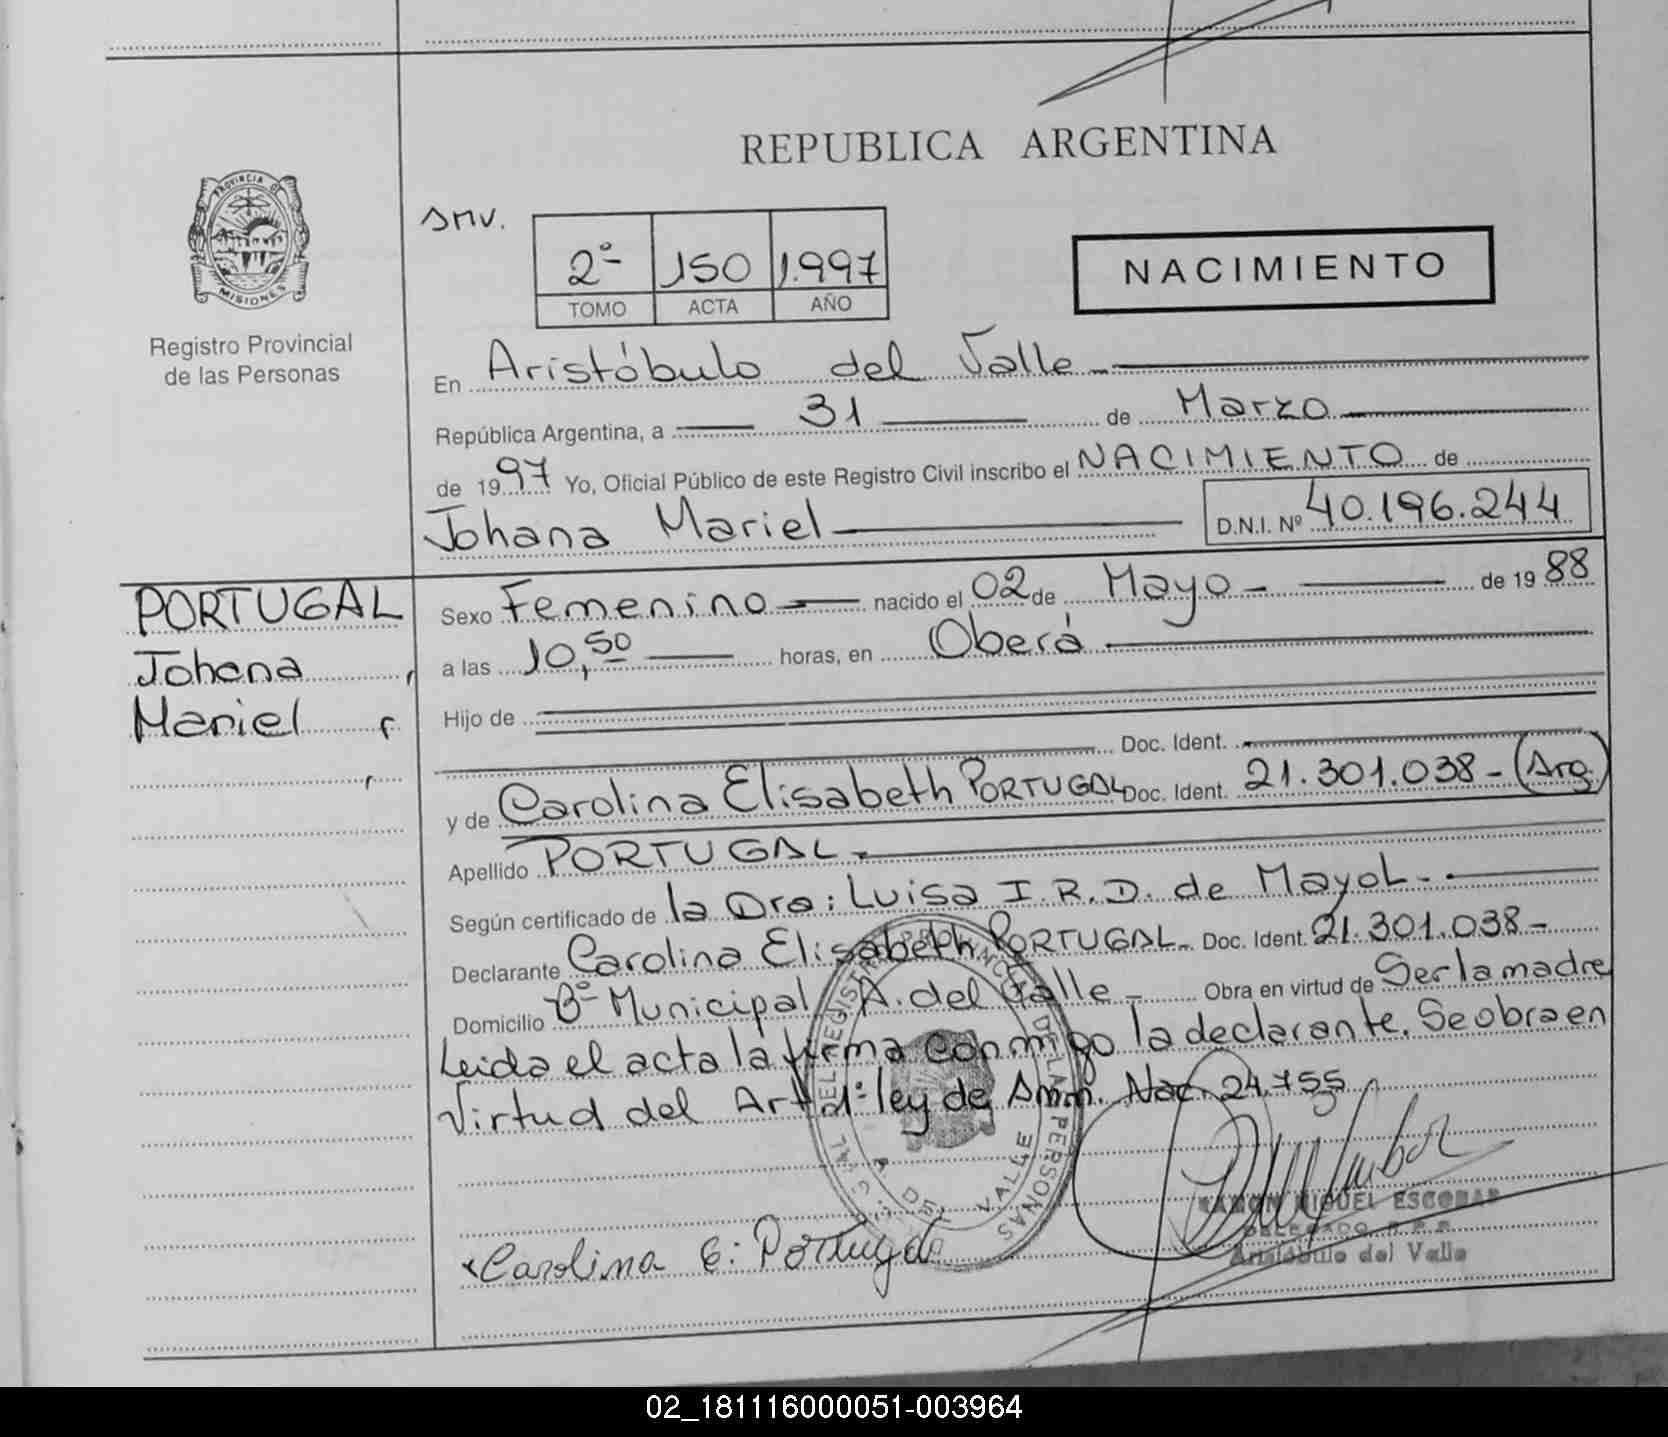 REPUBLICA ARGENTINA
PROVINCIA DE
MISIONES
Registro Provincial
de las Personas
SMV.
2º 150 1.997
TOMO ACTA AÑO
NACIMIENTO
En Aristóbulo del Valle
República Argentina, a 31 de Marzo
de 1997 Yo, Oficial Público de este Registro Civil inscribo el NACIMIENTO de
Johana Mariel D.N.I. Nº 40.196.244
PORTUGAL
Johana
Mariel
Sexo Femenino nacido el 02 de Mayo - de 19 88
a las 10,50 horas, en Oberá
Hijo de
Doc. Ident.
y de Carolina Elisabeth PORTUGAL Doc. Ident. 21.301.038 - (Arg)
Apellido PORTUGAL.
Según certificado de la Dra: Luisa I.R.D. de Mayol.
Declarante Carolina Elisabeth PORTUGAL Doc. Ident. 21.301.038 -
Domicilio Bº Municipal A. del Valle - Obra en virtud de Ser la madre
Leida el acta la firma conmigo la declarante. Se obra en
Virtud del Art 1º ley de Amn. Nac. 24.755
Carolina E: Portugal
RAMON MIGUEL ESCOBAR
DELEGADO R.P.P.
Aristóbulo del Valle
02_181116000051-003964